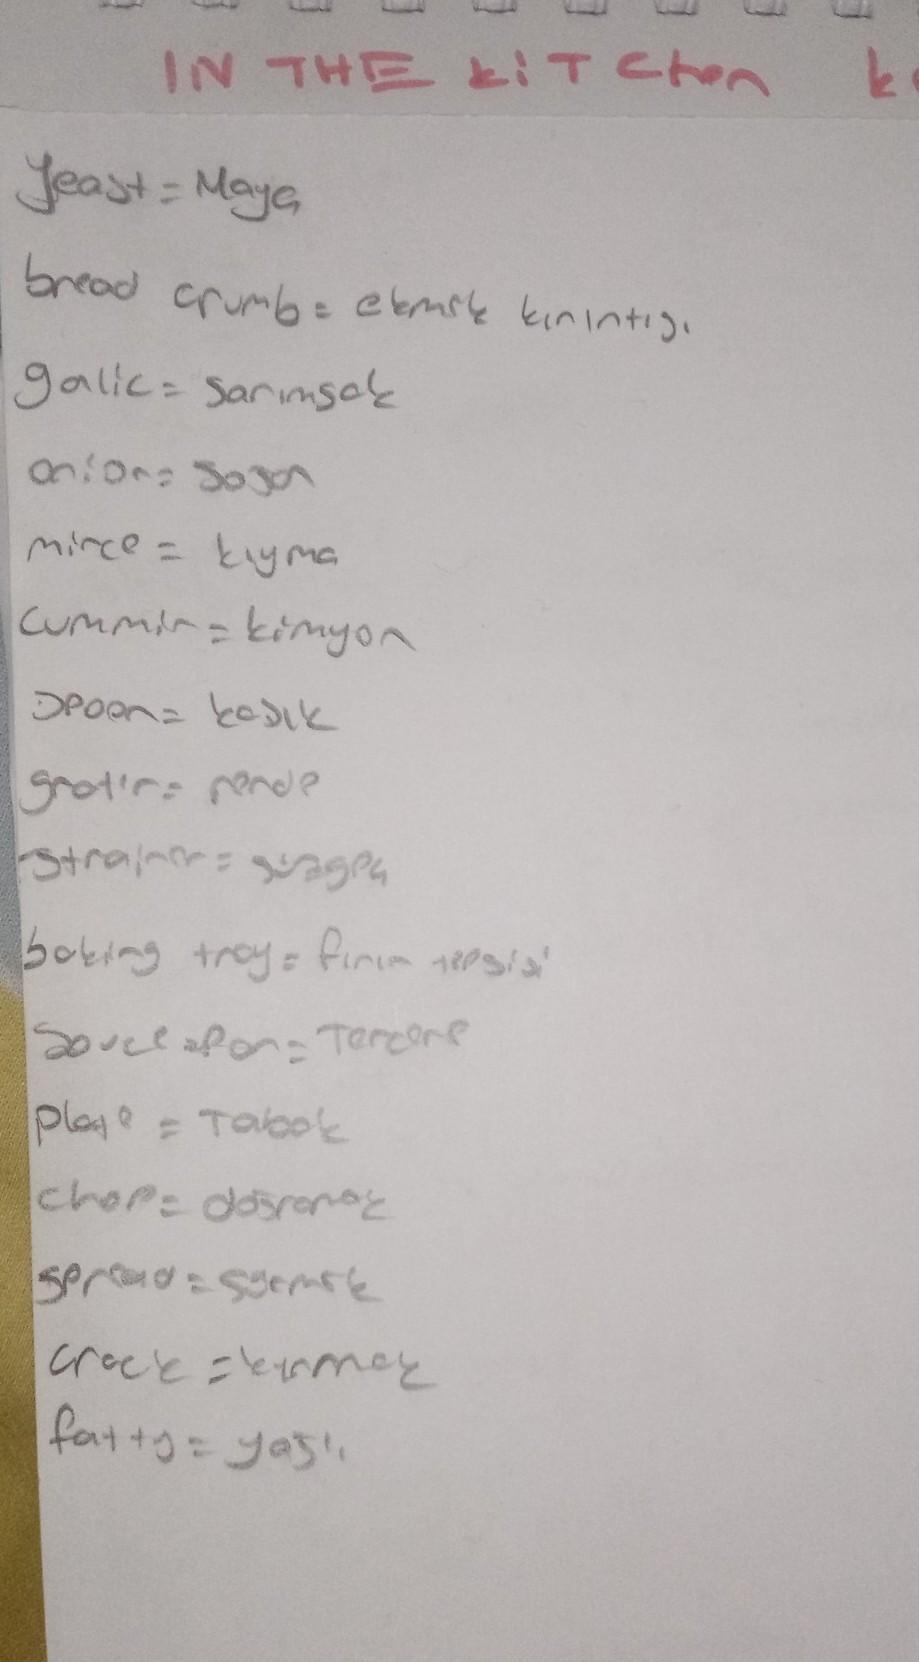 IN THE kiTchen
yeast = Maya
bread crumb = ekmek kırıntığı
galic = sarımsak
onion = soğan
mince = kıyma
cummin = kimyon
spoon = kaşık
strainer = süzgeç
baking tray = fırın tepsisi
= Tencere
plate = Tabak
chop = doğramak
spread =
crack = kırmak
fatty = yağlı